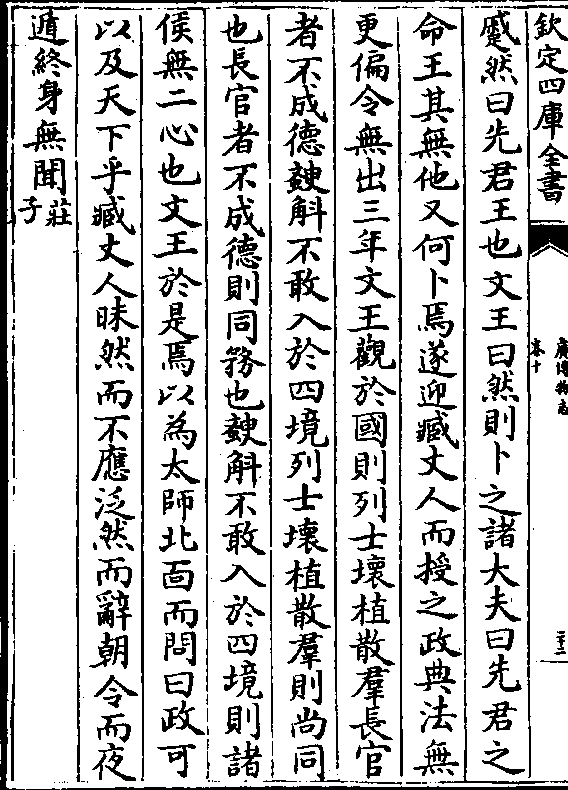 欽定四庫全書
廣博物志
卷十
二十二
蹙然曰先君王也文王曰然則卜之諸大夫曰先君之
命王其無他又何卜焉遂迎臧丈人而授之政典法無
更偏令無出三年文王觀於國則列士壞植散羣長官
者不成德䚦斛不敢入於四境列士壞植散羣則尚同
也長官者不成德則同務也䚦斛不敢入於四境則諸
侯無二心也文王於是焉以為太師北面而問曰政可
以及天下乎臧丈人昧然而不應泛然而辭朝令而夜
遁終身無聞莊子